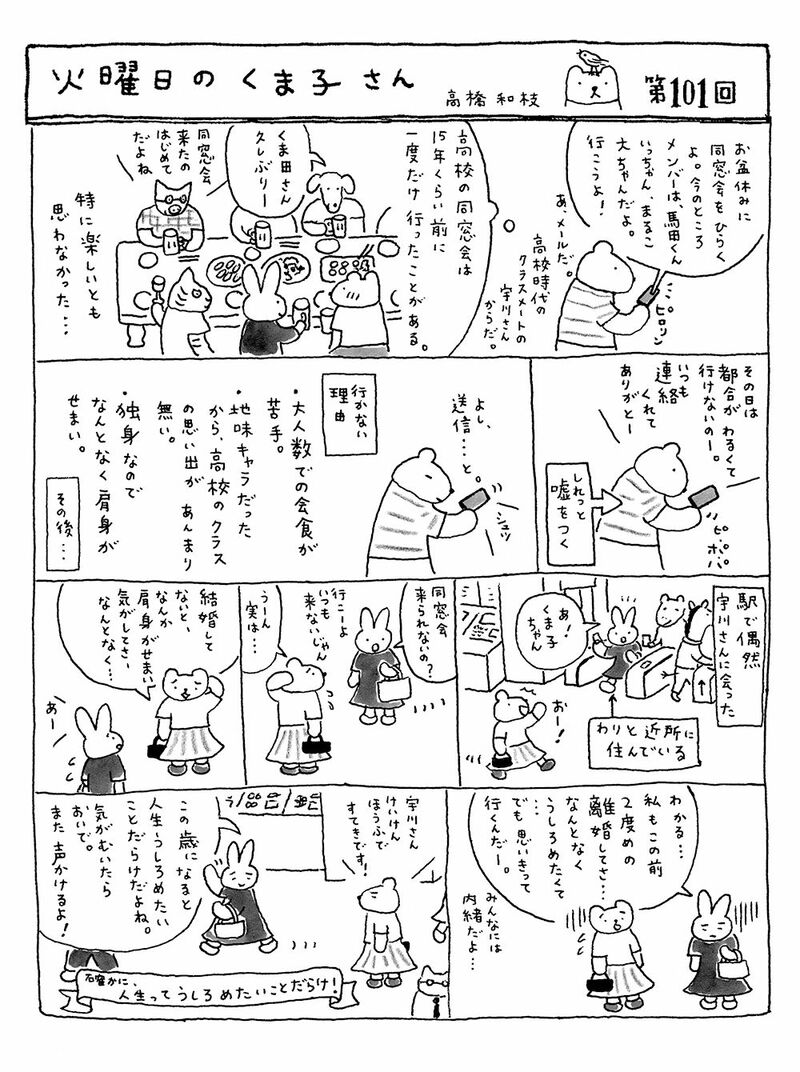 火曜日のくま子さん
高橋和枝
第101回
お盆休みに
同窓会をひらく
よ。今のところ
メンバーは、馬田くん
いっちゃん、まるこ
大ちゃんだよ。
行こうよ！
あ、メールだ。
高校時代の
クラスメートの
宇川さん
からだ。
ピロリン
高校の同窓会は
15年くらい前に
一度だけ行ったことがある。
くま田さん
久しぶりー
同窓会
来たの
はじめて
だよね
特に楽しいとも
思わなかった…
その日は
都合がわるくて
行けないのー。
いつも
連絡
くれて
ありがとー
ピ、ポ、パ
しれっと
嘘をつく
よし、
送信…と。
シュッ
行かない
理由
・大人数での会食が
苦手。
・地味キャラだった
から、高校のクラス
の思い出があんまり
無い。
・独身なので
なんとなく肩身が
せまい。
その後…
駅で偶然
宇川さんに会った
あ！
くま子
ちゃん
おー！
わりと近所に
住んでいる
同窓会
来られないの？
行こーよ
いつも
来ないじゃん
うーん
実は…
結婚して
ないと、
なんか
肩身がせまい
気がしてさ、
なんとなく…
あー
わかる…
私もこの前
2度めの
離婚してさ…
なんとなく
うしろめたくて
…
でも思いきって
行くんだー。
みんなには
内緒だよ…
宇川さん
けいけん
ほうふで
すてきです！
この歳になると
人生うしろめたい
ことだらけだよね。
気がむいたら
おいで。
また声かけるよ！
確かに、
人生ってうしろめたいことだらけ！